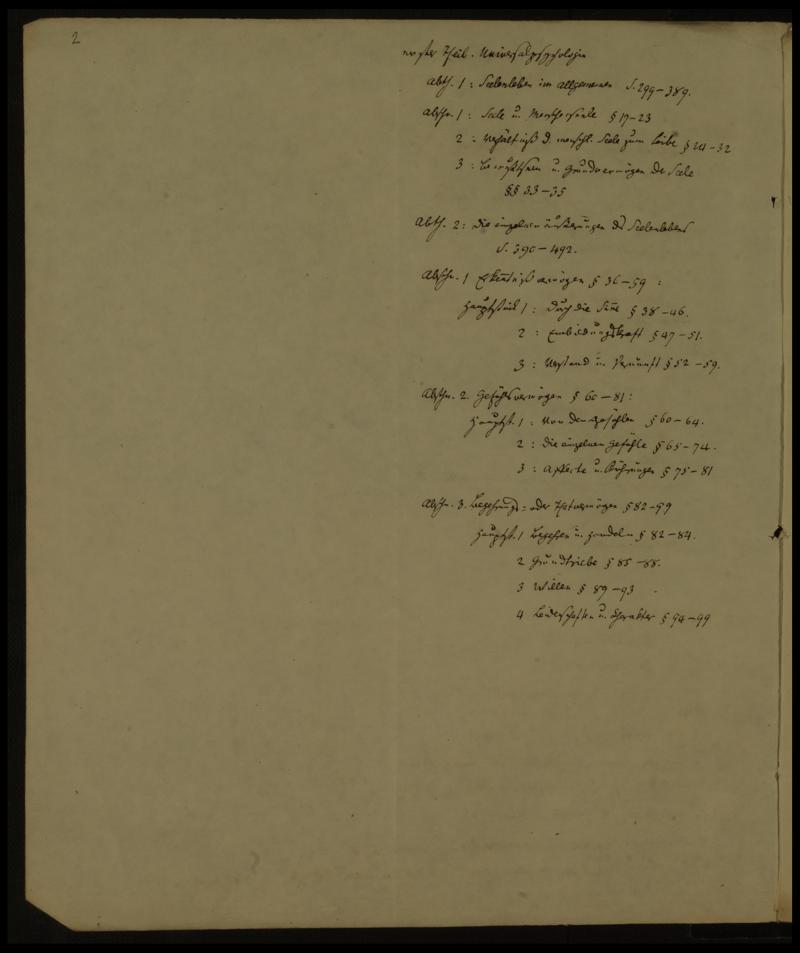 2
erster Theil. Universalpsychologie
Abth. 1: Seelenleben im Allgemeinen S. 299-389.
Abschn. 1: Seele u. Menschenseele § 17-23
2: Verhältniß d. menschl. Seele zum Leibe § 24-32
3: Bewußtsein u. Grundvermögen der Seele
§§ 33-35
Abth. 2: Die einzelnen Äußerungen des Seelenlebens
S. 390-492.
Abschn. 1 Erkentnißvermögen § 36-59:
Hauptstück 1: Durch die Sinne § 38-46.
2: Einbildungskraft § 47-51.
3: Verstand u. Vernunft § 52-59.
Abschn. 2. Gefühlsvermögen § 60-81:
Hauptst. 1: Von den Gefühlen § 60-64.
2: Die einzelnen Gefühle § 65-74.
3: Affecte u. Rührungen § 75-81
Abschn. 3. Begehrungs- oder Thatvermögen § 82-99
Hauptst. 1 Begehren u. Handeln § 82-84.
2 Grundtriebe § 85-88.
3 Willen § 89-93
4 Leidenschaften u. Charakter § 94-99